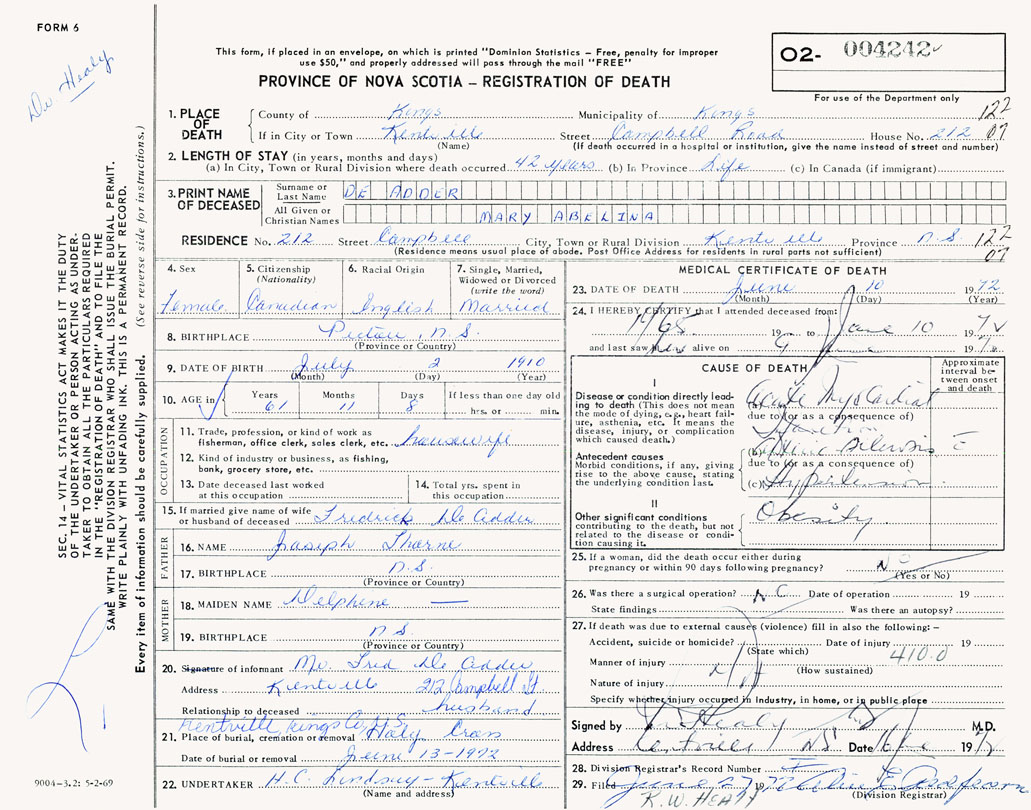 FORM 6
Dr. Healy
This form, if placed in an envelope, on which is printed "Dominion Statistics – Free, penalty for improper
use $50," and properly addressed will pass through the mail "FREE"
PROVINCE OF NOVA SCOTIA – REGISTRATION OF DEATH
02- 004242
For use of the Department only
122
07
1. PLACE OF DEATH
County of Kings Municipality of Kings
If in City or Town Kentville Street Campbell Road House No. 212
(Name) (If death occurred in a hospital or institution, give the name instead of street and number)
2. LENGTH OF STAY (in years, months and days)
(a) In City, Town or Rural Division where death occurred 42 years (b) In Province Life (c) In Canada (if immigrant)
3. PRINT NAME OF DECEASED
Surname or Last Name DE ADDER
All Given or Christian Names MARY ABELINA
RESIDENCE No. 212 Street Campbell City, Town or Rural Division Kentville Province N.S. 122
(Residence means usual place of abode. Post Office Address for residents in rural parts not sufficient) 07
4. Sex
Female
5. Citizenship
(Nationality)
Canadian
6. Racial Origin
English
7. Single, Married,
Widowed or Divorced
(write the word)
Married
8. BIRTHPLACE Pictou, N.S.
(Province or Country)
9. DATE OF BIRTH July 2 1910
(Month) (Day) (Year)
10. AGE in
Years Months Days If less than one day old
61 11 8 hrs. or min.
OCCUPATION
11. Trade, profession, or kind of work as
fisherman, office clerk, sales clerk, etc. housewife
12. Kind of industry or business, as fishing,
bank, grocery store, etc.
13. Date deceased last worked
at this occupation
14. Total yrs. spent in
this occupation
15. If married give name of wife
or husband of deceased Fredrick De Adder
FATHER
16. NAME Joseph Thorne
17. BIRTHPLACE N.S.
(Province or Country)
MOTHER
18. MAIDEN NAME Delphene —
19. BIRTHPLACE N.S.
(Province or Country)
20. Signature of informant Mr. Fred De Adder
Address Kentville 212 Campbell St.
Relationship to deceased husband
Kentville, Kings Co. N.S.
21. Place of burial, cremation or removal Holy Cross
Date of burial or removal June 13-1972
22. UNDERTAKER H.C. Lindsay – Kentville
(Name and address)
MEDICAL CERTIFICATE OF DEATH
23. DATE OF DEATH June 10 1972
(Month) (Day) (Year)
24. I HEREBY CERTIFY that I attended deceased from:
1968 19 to June 10 1972
and last saw alive on 9 June 197
CAUSE OF DEATH
Approximate
interval be-
tween onset
and death
I
Disease or condition directly lead-
ing to death (This does not mean
the mode of dying, e.g., heart fail-
ure, asthenia, etc. It means the
disease, injury, or complication
which caused death.)
(a) Acute Myocardial
due to (or as a consequence of)
Infarction
Antecedent causes
Morbid conditions, if any, giving
rise to the above cause, stating
the underlying condition last.
(b) Sclerosis c̄
due to (or as a consequence of)
(c) Hypertension
II
Other significant conditions
contributing to the death, but not
related to the disease or condi-
tion causing it.
Obesity
25. If a woman, did the death occur either during
pregnancy or within 90 days following pregnancy? No
(Yes or No)
26. Was there a surgical operation? No Date of operation 19
State findings Was there an autopsy?
27. If death was due to external causes (violence) fill in also the following:–
Accident, suicide or homicide? Date of injury 19
(State which) 410.0
Manner of injury
(How sustained)
Nature of injury
Specify whether injury occurred in Industry, in home, or in public place
Signed by Healy M.D.
Address Kentville NS Date 16 June 197
28. Division Registrar's Record Number
29. Filed June 27 1972
(Division Registrar)
K.W. HEALY
SEC. 14 – VITAL STATISTICS ACT MAKES IT THE DUTY
OF THE UNDERTAKER OR PERSON ACTING AS UNDER-
TAKER TO OBTAIN ALL THE PARTICULARS REQUIRED
IN THE "REGISTRATION OF DEATH" AND TO FILE THE
SAME WITH THE DIVISION REGISTRAR WHO SHALL ISSUE THE BURIAL PERMIT.
WRITE PLAINLY WITH UNFADING INK. THIS IS A PERMANENT RECORD.
Every item of information should be carefully supplied. (See reverse side for instructions.)
9004-3.2: 5-2-69